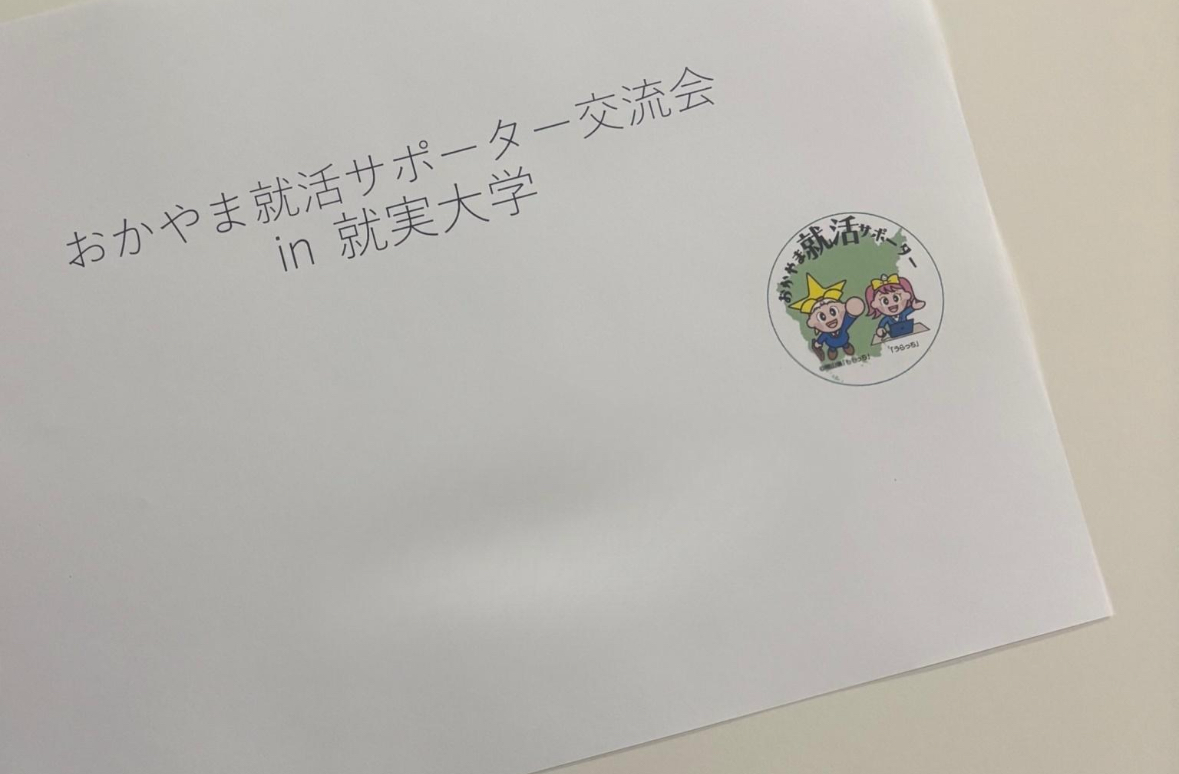 おかやま就活サポーター交流会
in 就実大学
おかやま就活サポーター
「うらっち」